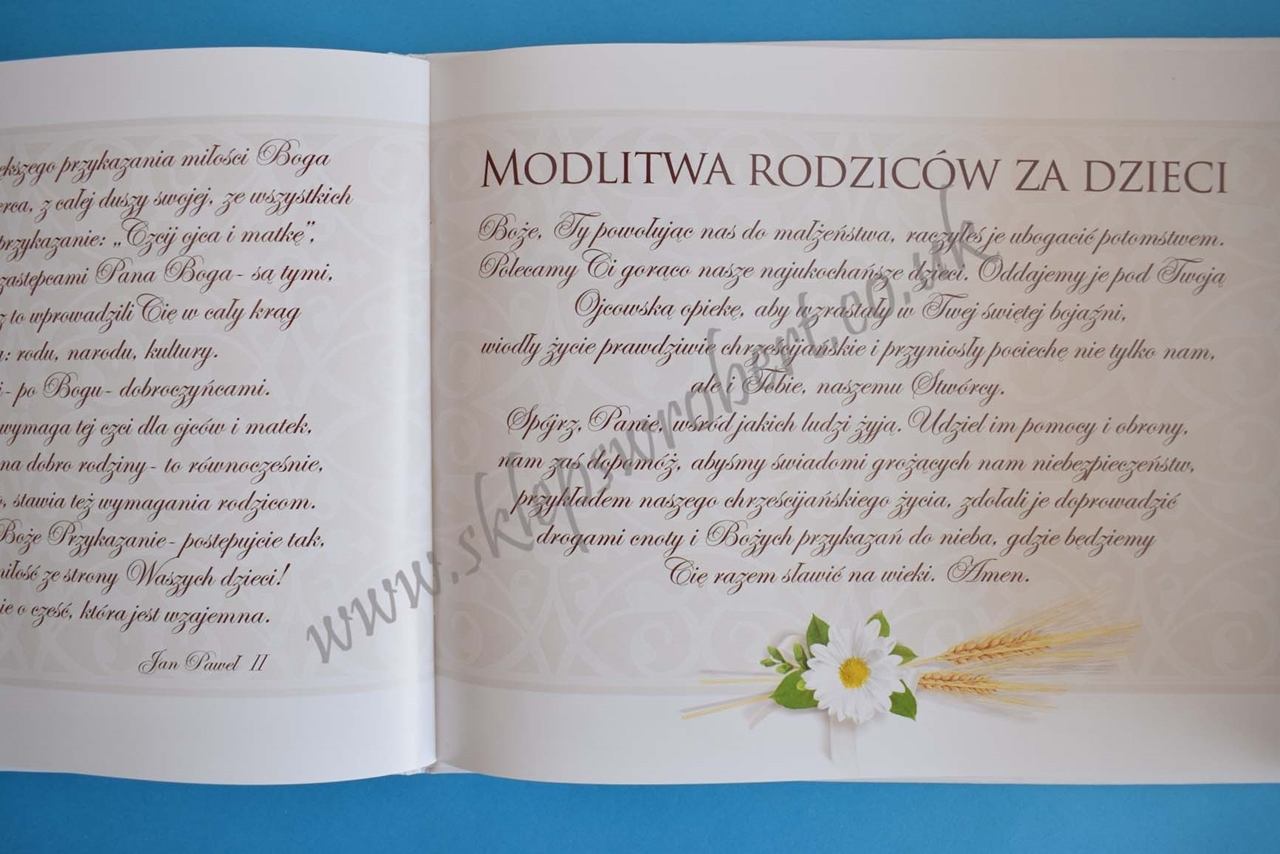 ększego przykazania miłości Boga
erca, z całej duszy swojej, ze wszystkich
przykazanie: „Czcij ojca i matkę”,
zastępcami Pana Boga - są tymi,
z to wprowadzili Cię w cały krąg
: rodu, narodu, kultury.
i - po Bogu - dobroczyńcami.
wymaga tej czci dla ojców i matek,
na dobro rodziny - to równocześnie,
, stawia też wymagania rodzicom.
Boże Przykazanie - postępujcie tak,
miłość ze strony Waszych dzieci!
ie o cześć, która jest wzajemna.
Jan Paweł II
MODLITWA RODZICÓW ZA DZIECI
Boże, Ty powołując nas do małżeństwa, raczyłeś je ubogacić potomstwem.
Polecamy Ci gorąco nasze najukochańsze dzieci. Oddajemy je pod Twoją
Ojcowską opiekę, aby wzrastały w Twej świętej bojaźni,
wiodły życie prawdziwie chrześcijańskie i przyniosły pociechę nie tylko nam,
ale i Tobie, naszemu Stwórcy.
Spójrz, Panie, wśród jakich ludzi żyją. Udziel im pomocy i obrony,
nam zaś dopomóż, abyśmy świadomi grożących nam niebezpieczeństw,
przykładem naszego chrześcijańskiego życia, zdołali je doprowadzić
drogami cnoty i Bożych przykazań do nieba, gdzie będziemy
Cię razem sławić na wieki. Amen.
www.sklepswrobert.co.uk